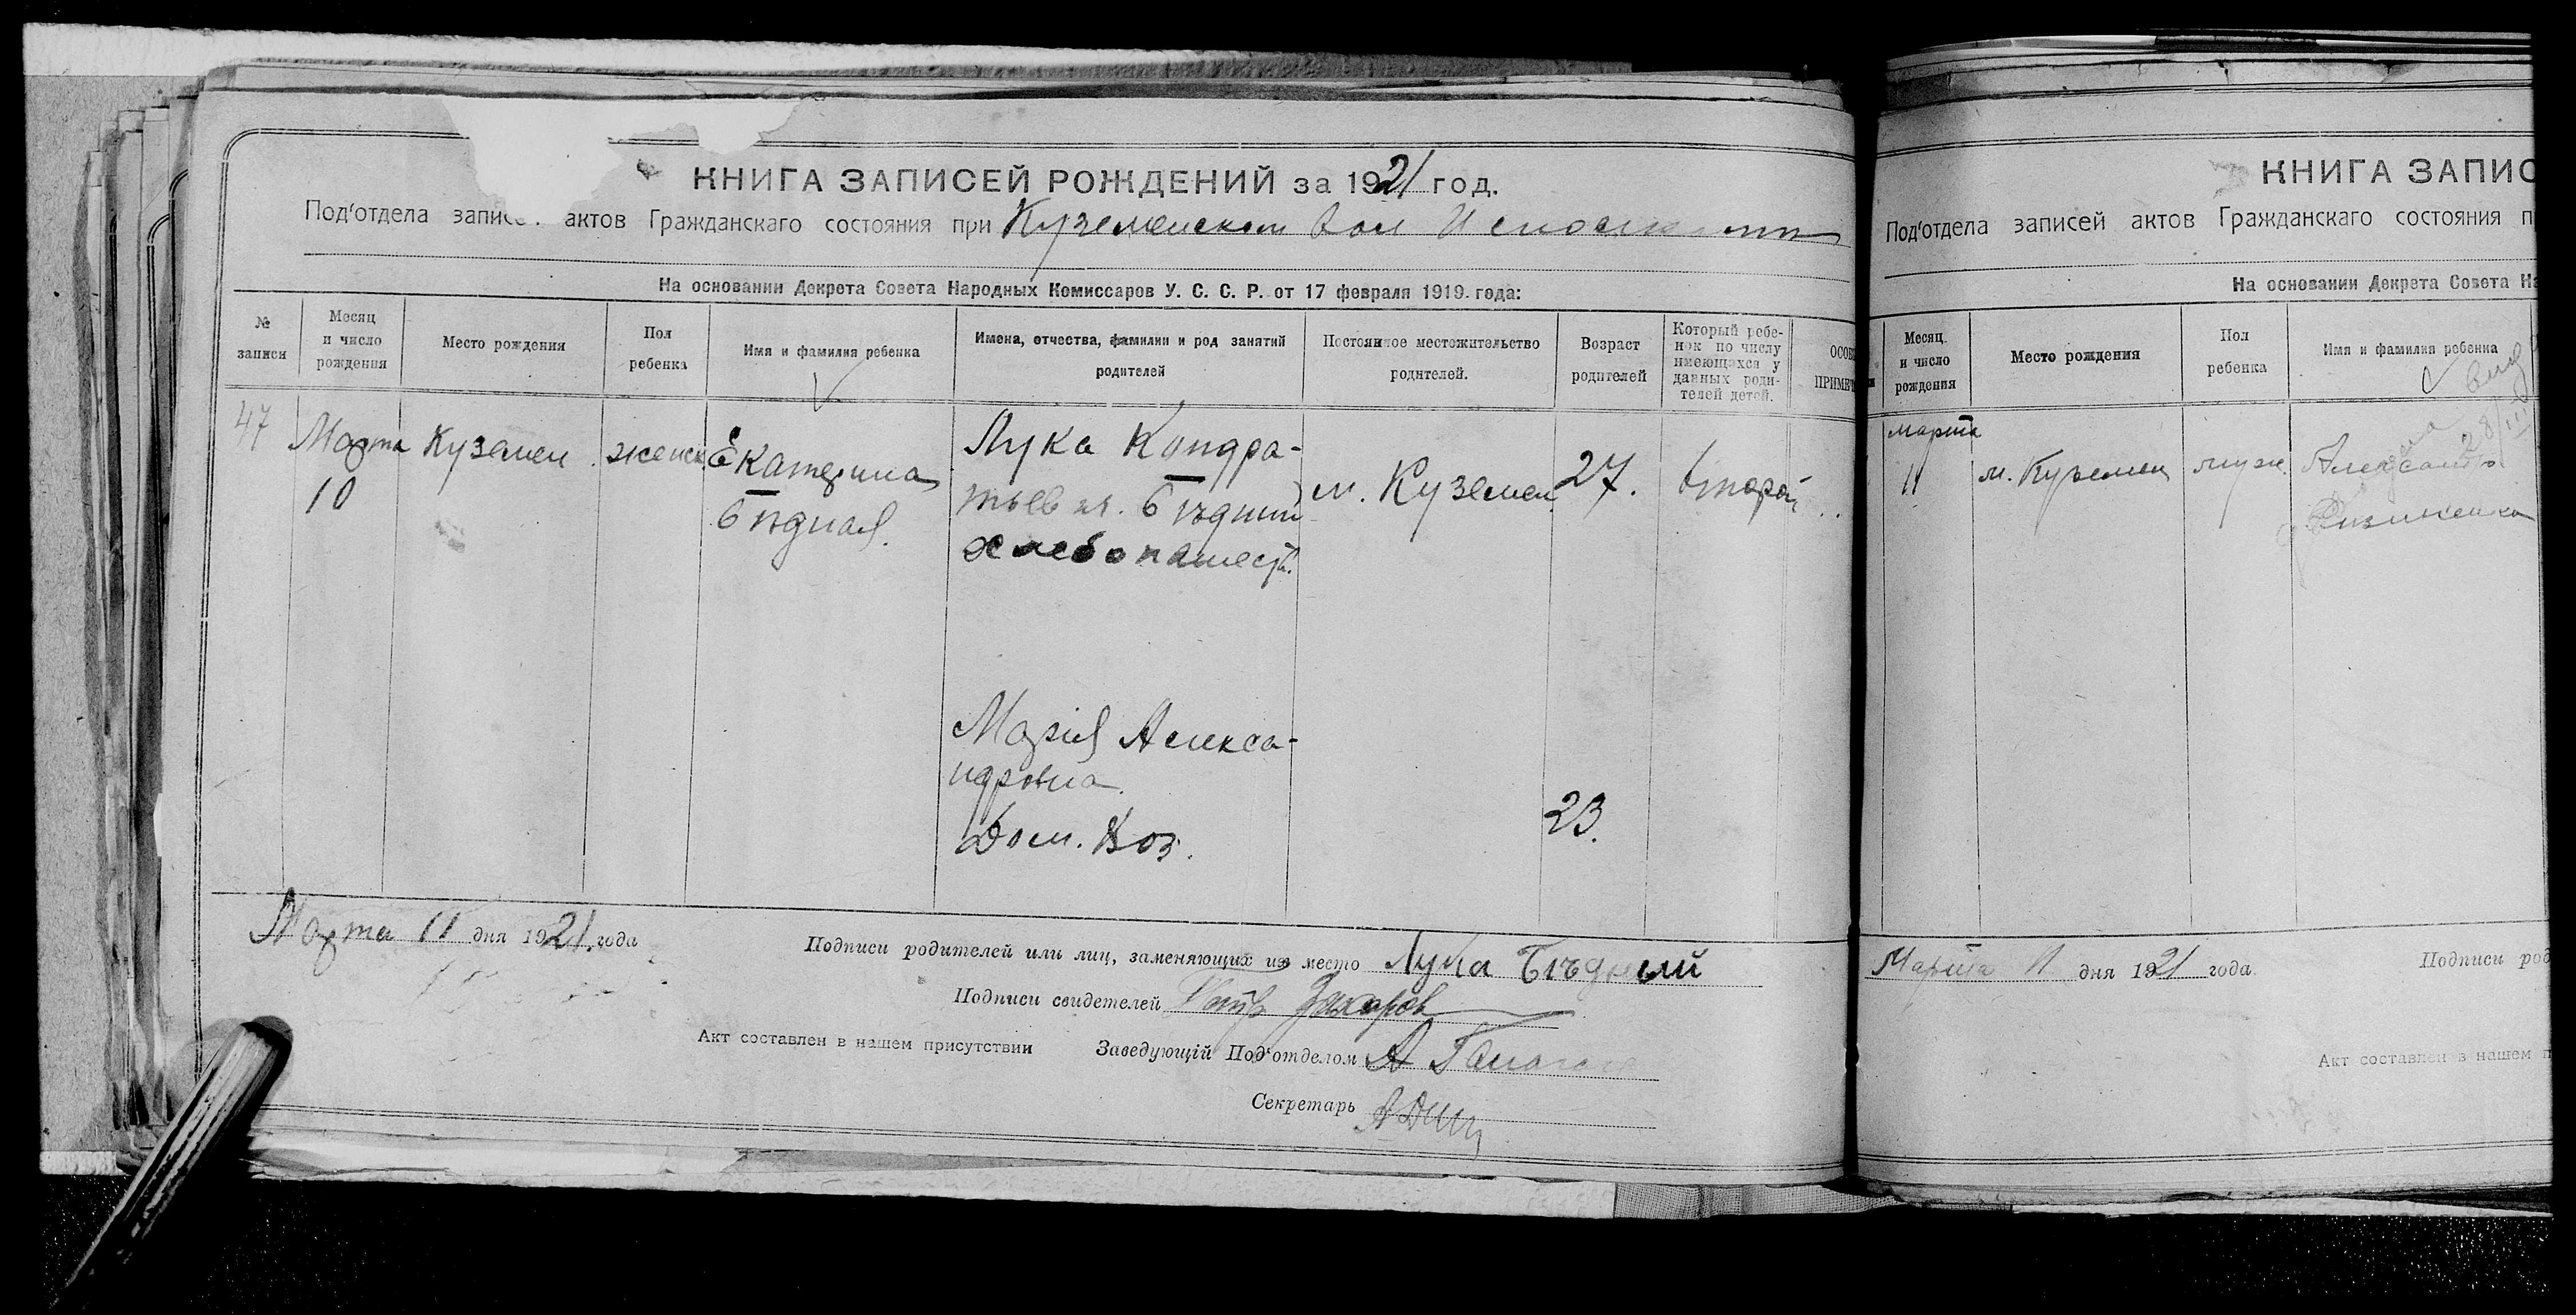 КНИГА ЗАПИСЕЙ РОЖДЕНИЙ за 1921 год.
Под'отдела записе актов Гражданскаго состояния при Куземенском Вол Исполкоми
На основании Декрета Совета Народных Комиссаров У. С. С. Р. от 17 февраля 1919 года:
№ записи
Месяц и число рождения
Место рождения
Пол ребенка
Имя и фамилия ребенка
Имена, отчества, фамилии и род занятий родителей
Постоянное местожительство родителей.
Возраст родителей
Который ребе-
нок по числу
имеющихся у
данных роди-
телей детей.
ОСОБ
ПРИМЕЧ
47
Марта
10
Куземен
женск
Екатерина
Бѣдная.
Лука Кондра-
тьевич. Бѣдный
хлебопашест.
м. Куземен.
27.
Второй
Мария Алекса-
ндровна.
Дом. Хоз.
23.
Марта 11 дня 1921 года
Подписи родителей или лиц, заменяющих их место Лука Бѣдный
Подписи свидетелей Петр Захаров
Акт составлен в нашем присутствии Заведующій Под'отделом А
Секретарь
КНИГА ЗАПИС
Под'отдела записей актов Гражданскаго состояния п
На основании Декрета Совета На
Месяц и число рождения
Место рождения
Пол ребенка
Имя и фамилия ребенка
марта
11
м. Куземен
муж.
Александр
Марта 11 дня 1921 года
Подписи род
Акт составлен в нашем п